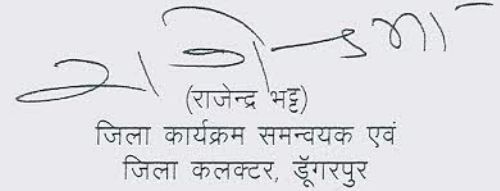 (राजेन्द्र भट्ट)
जिला कार्यक्रम समन्वयक एवं
जिला कलक्टर, डूँगरपुर